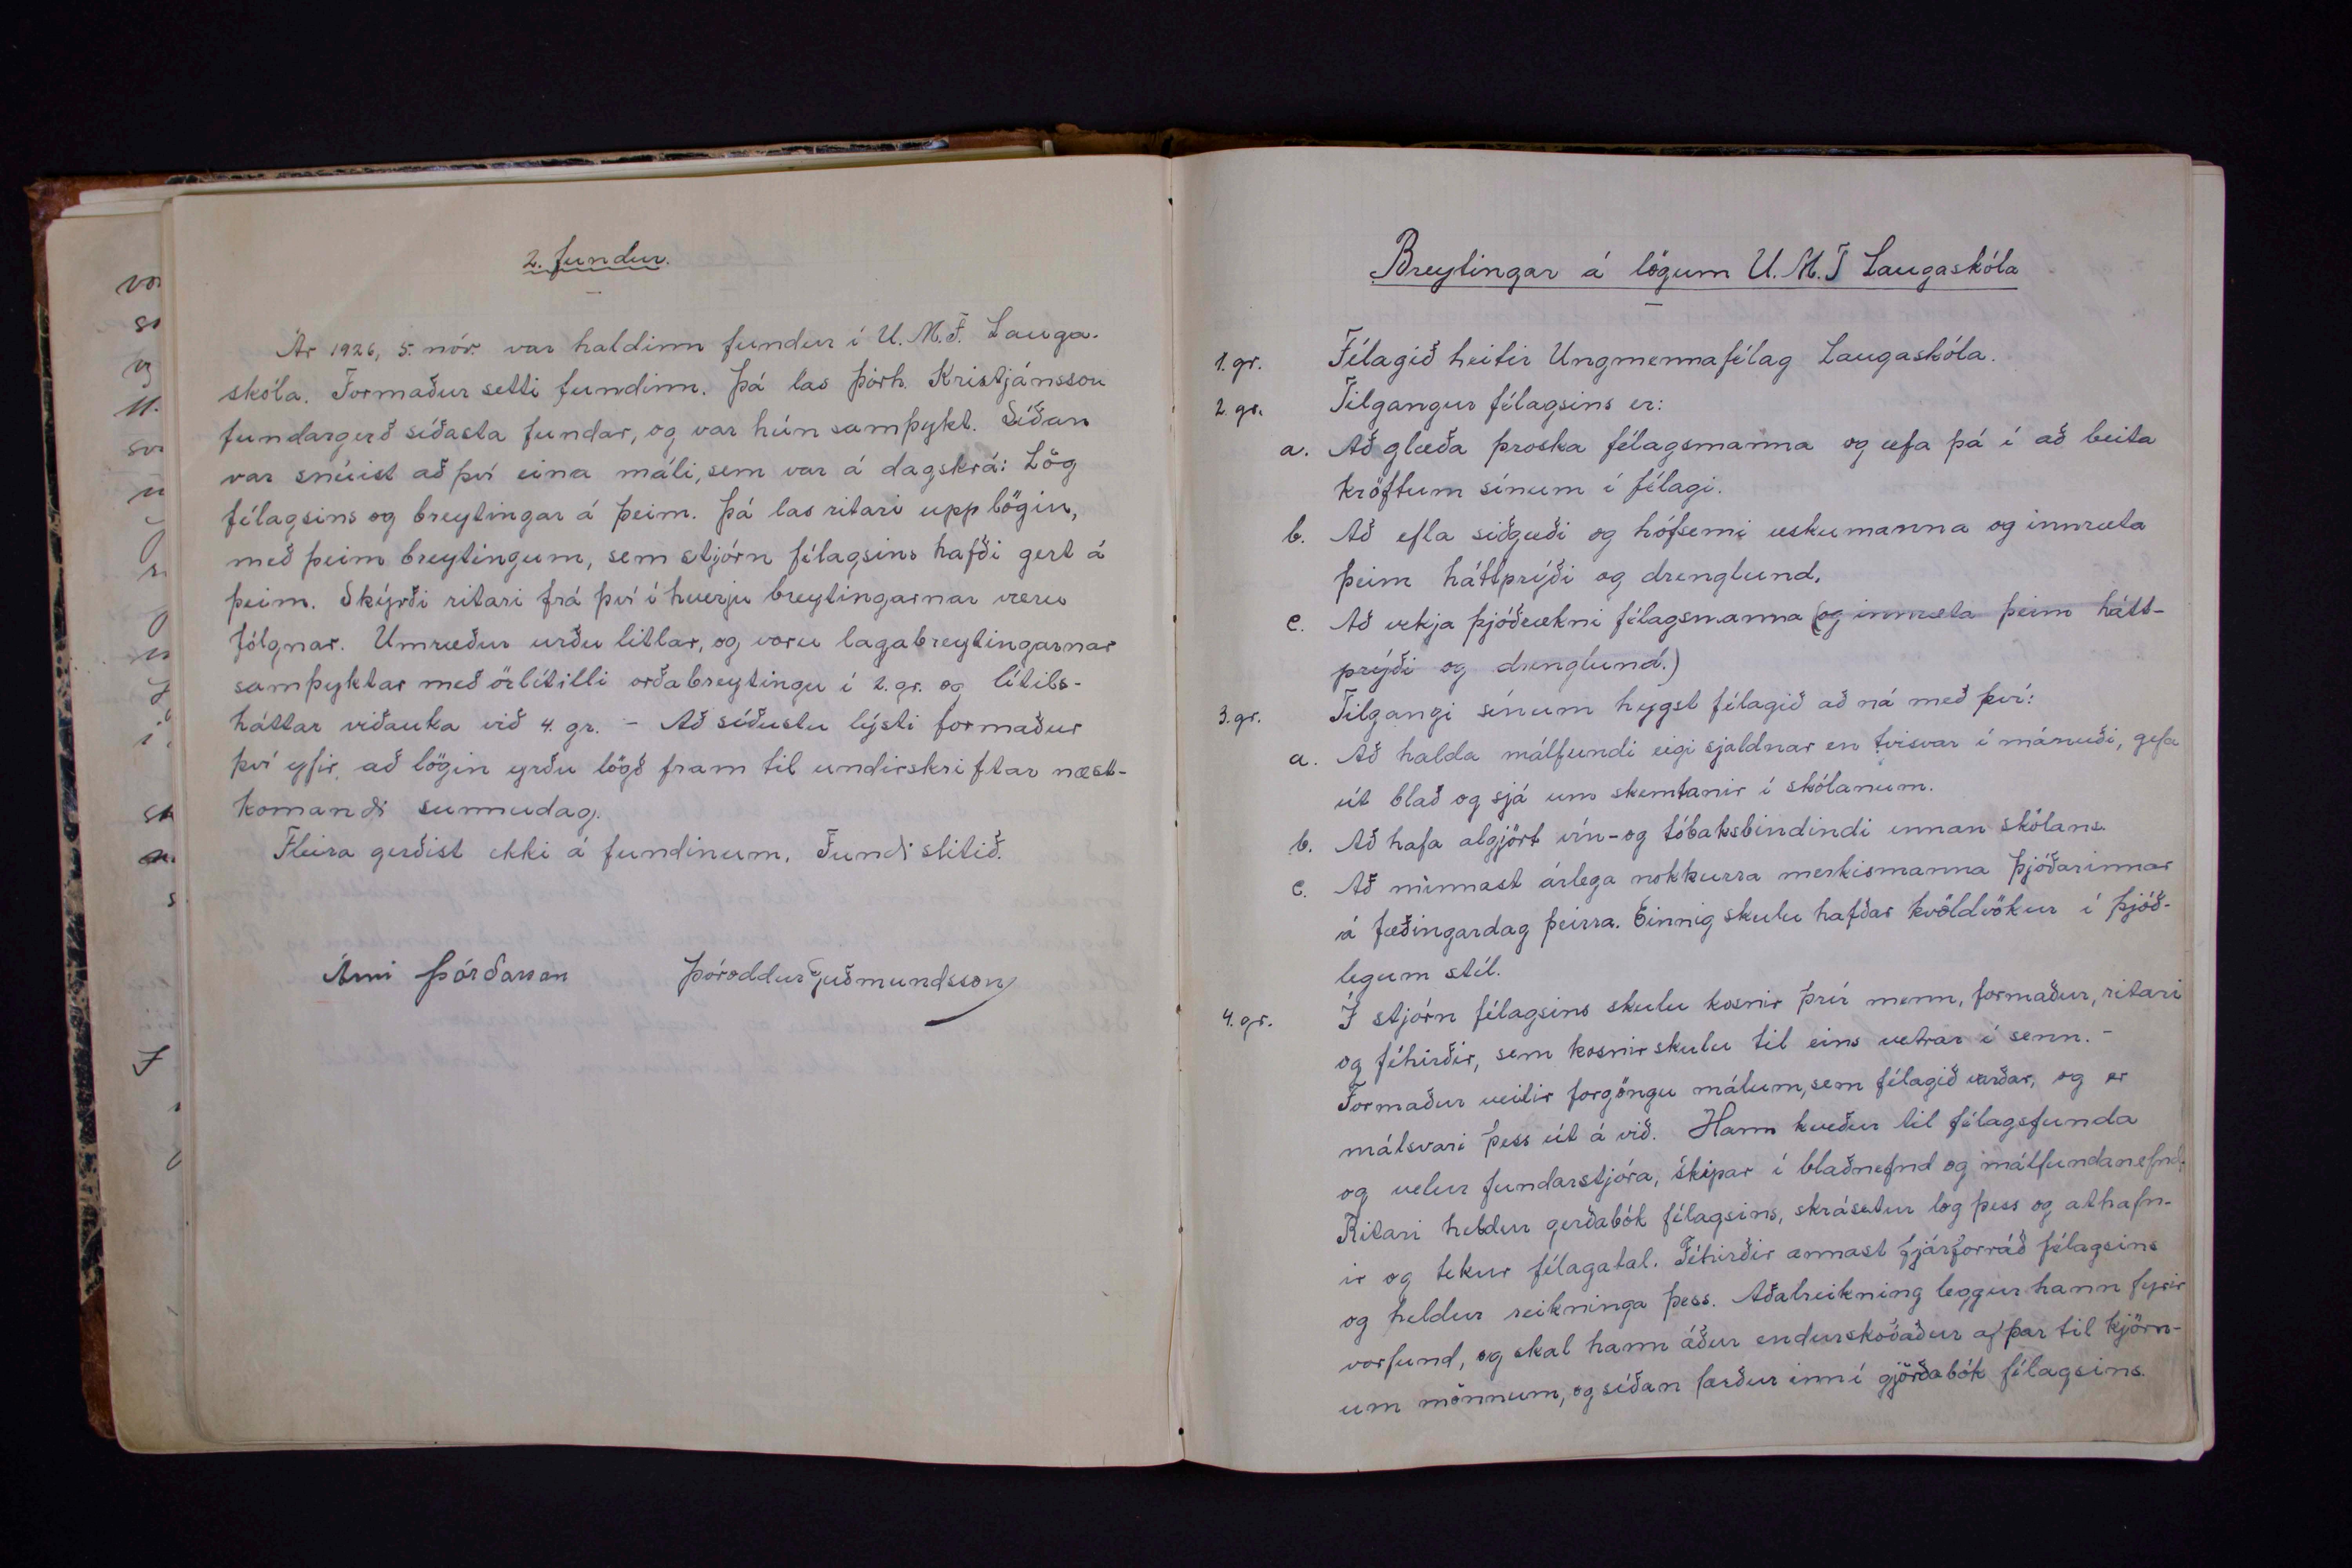 2. fundur.
Ár 1926, 5. nóv. var haldinn fundur í U.M.F. Lauga-
skóla. Formaður setti fundinn. Þá las Þórh. Kristjánsson
fundargerð síðasta fundar, og var hún samþykt. Síðan
var snúist að því eina máli, sem var á dagskrá: Lög
félagsins og breytingar á þeim. Þá las ritari upp lögin,
með þeim breytingum, sem stjórn félagsins hafði gert á
þeim. Skýrði ritari frá því í hverju breytingarnar væru
fólgnar. Umræður urðu litlar, og voru lagabreytingarnar
samþyktar með örlítilli orðabreytingu í 2. gr. og lítils-
háttar viðauka við 4. gr. - Að síðustu lýsti formaður
því yfir, að lögin yrðu lögð fram til undirskriftar næst-
komandi sunnudag.
Fleira gerðist ekki á fundinum. Fundi slitið.
Árni Þórðarson Þóroddur Guðmundsson
Breytingar á lögum U.M.F Laugaskóla
1. gr. Félagið heitir Ungmennafélag Laugaskóla.
2. gr. Tilgangur félagsins er:
a. Að glæða þroska félagsmanna og æfa þá í að beita
kröftum sínum í félagi.
b. Að efla siðgæði og hófsemi æskumanna og innræta
þeim háttprýði og drenglund.
c. Að vekja þjóðrækni félagsmanna (og innræta þeim hátt-
prýði og drenglund.)
3. gr. Tilgangi sínum hygst félagið að ná með því:
a. Að halda málfundi eigi sjaldnar en tvisvar í mánuði, gefa
út blað og sjá um skemtanir í skólanum.
b. Að hafa algjört vín- og tóbaksbindindi innan skólans.
c. Að minnast árlega nokkurra merkismanna þjóðarinnar
á fæðingardag þeirra. Einnig skulu hafðar kvöldvökur í þjóð-
legum stíl.
4. gr. Í stjórn félagsins skulu kosnir þrír menn, formaður, ritari
og féhirðir, sem kosnir skulu til eins vetrar í senn. -
Formaður veitir forgöngu málum, sem félagið varðar, og er
málsvari þess út á við. Hann kveður til félagsfunda
og velur fundarstjóra, skipar í blaðnefnd og málfundanefnd.
Ritari heldur gerðabók félagsins, skrásetur lög þess og athafn-
ir og tekur félagatal. Féhirðir annast fjárforráð félagsins
og heldur reikninga þess. Aðalreikning leggur hann fyrir
vorfund, og skal hann áður endurskoðaður af þar til kjörn-
um mönnum, og síðan færður inn í gjörðabók félagsins.